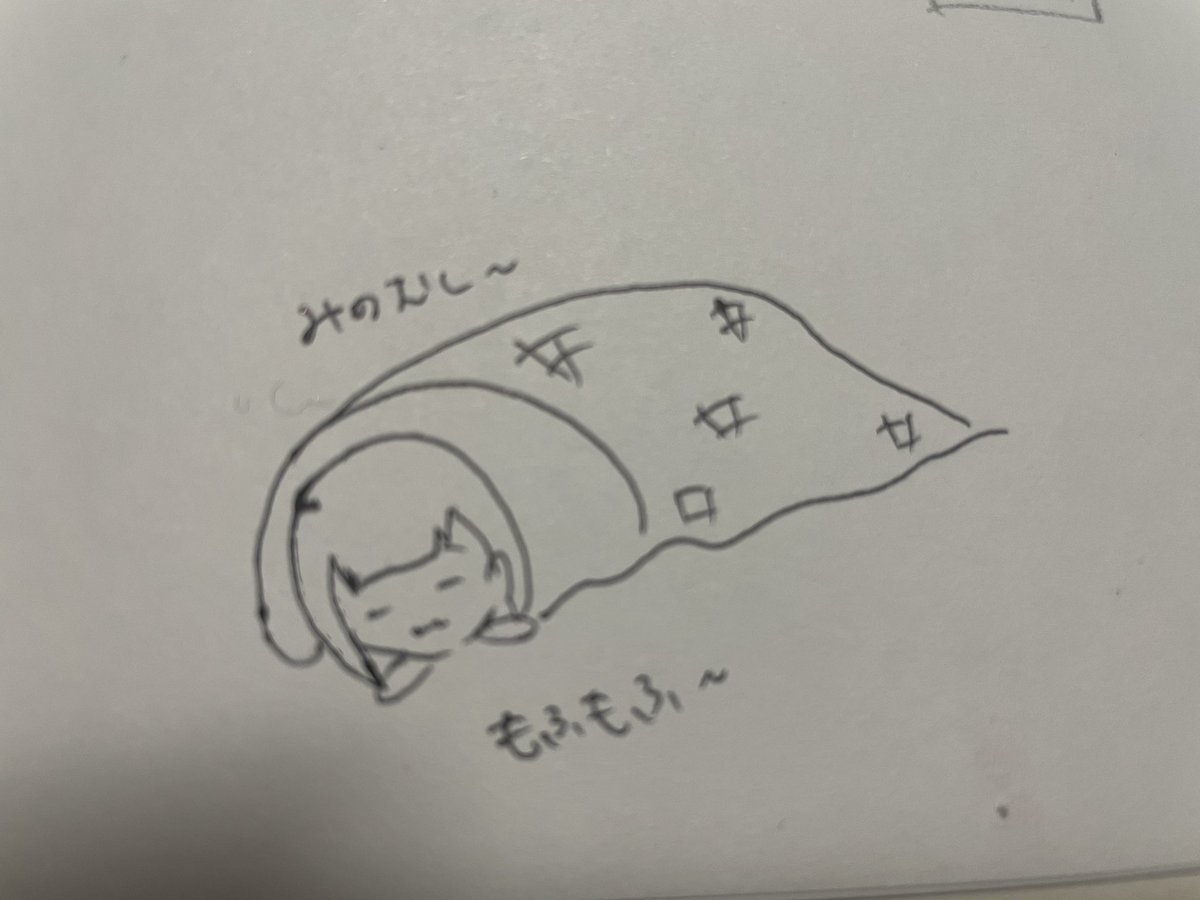 みのむし～
もふもふ～